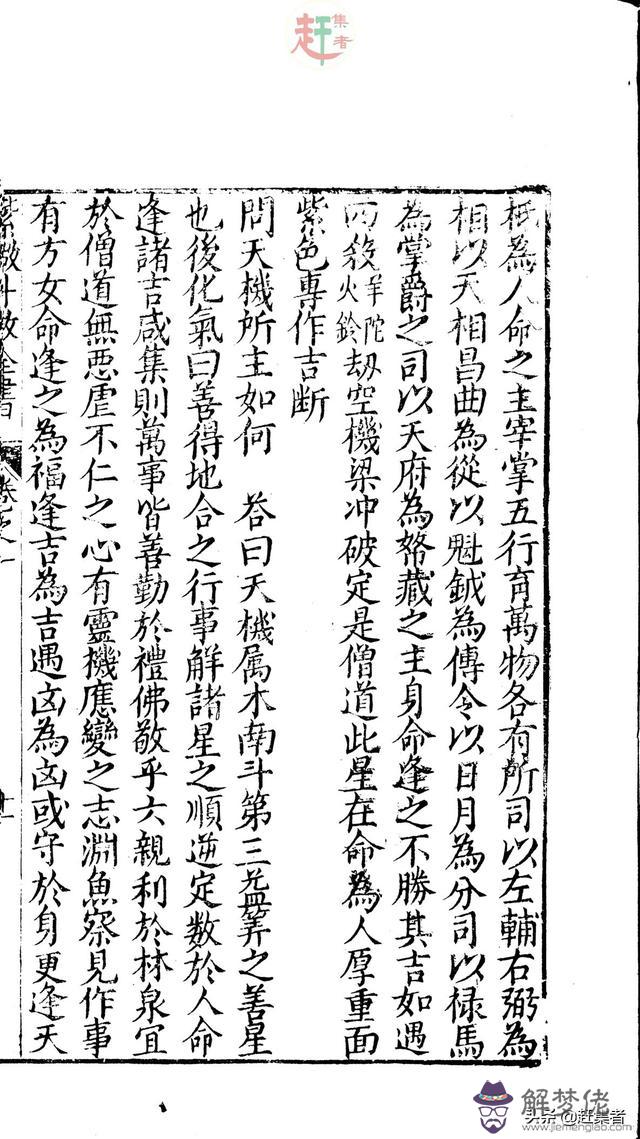 赶集者
祇為人命之主宰掌五行育萬物各有所司以左輔右弼為
相以天相昌曲為從以魁鉞為傳令以日月為分司以祿馬
為掌爵之司以天府為帑藏之主身命逢之不勝其吉如遇
四殺羊陀火鈴劫空機梁冲破定是僧道此星在命為人厚重面
紫色專作吉断
問天機所主如何　荅曰天機属木南斗第三益筭之善星
也後化氣曰善得地合之行事解諸星之順逆定数於人命
逢諸吉咸集則萬事皆善勤於禮佛敬乎六親利於林泉宜
於僧道無惡虐不仁之心有靈機應變之志淵魚察見作事
有方女命逢之為福逢吉為吉遇凶為凶或守於身更逢天
紫微斗数全書 卷之一
十一
解梦佬
www.jiemenglao.com
头条@赶集者